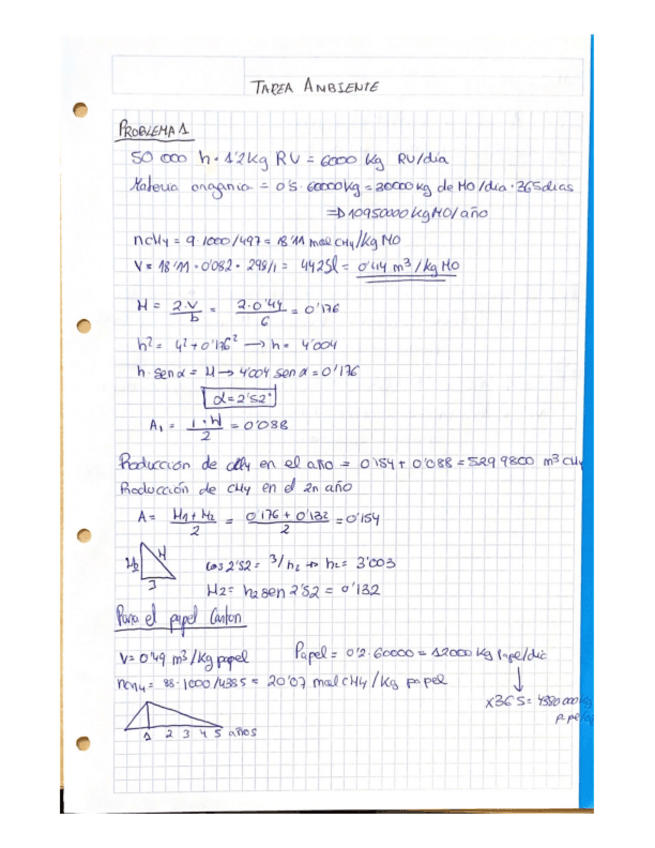 TAREA AMBIENTE
PROBLEMA 1
50 000 h · 1'2kg RU = 6000 kg RU/día
Materia organica = 0'5 · 60000kg = 30000 kg de MO/dia · 365dias
=> 10950000 kgMO/año
nCH4 = 9·1000/497 = 18'11 mol CH4/kg MO
V = 18'11 · 0'082 · 298/1 = 442'5l = 0'44 m³/kg MO
H = 2·V/b = 2·0'44/6 = 0'176
h² = 4² + 0'176² → h = 4'004
h · sen α = H → 4'004 sen α = 0'176
α = 2'52°
A₁ = 1·H/2 = 0'088
Producción de CH4 en el año = 0'154 + 0'088 = 529 9800 m³ CH4
Producción de CH4 en el 2n año
A = H1 + H2/2 = 0'176 + 0'132/2 = 0'154
H2 H cos 2'52 = 3/h2 → h2 = 3'003
3 H2 = h2 sen 2'52 = 0'132
Para el papel Carton
V = 0'49 m³/kg papel Papel = 0'2 · 60000 = 12000 kg papel/dia
nCH4 = 88·1000/4385 = 20'07 mol CH4/kg papel
x365 = 4380 000 kg
1 2 3 4 5 años